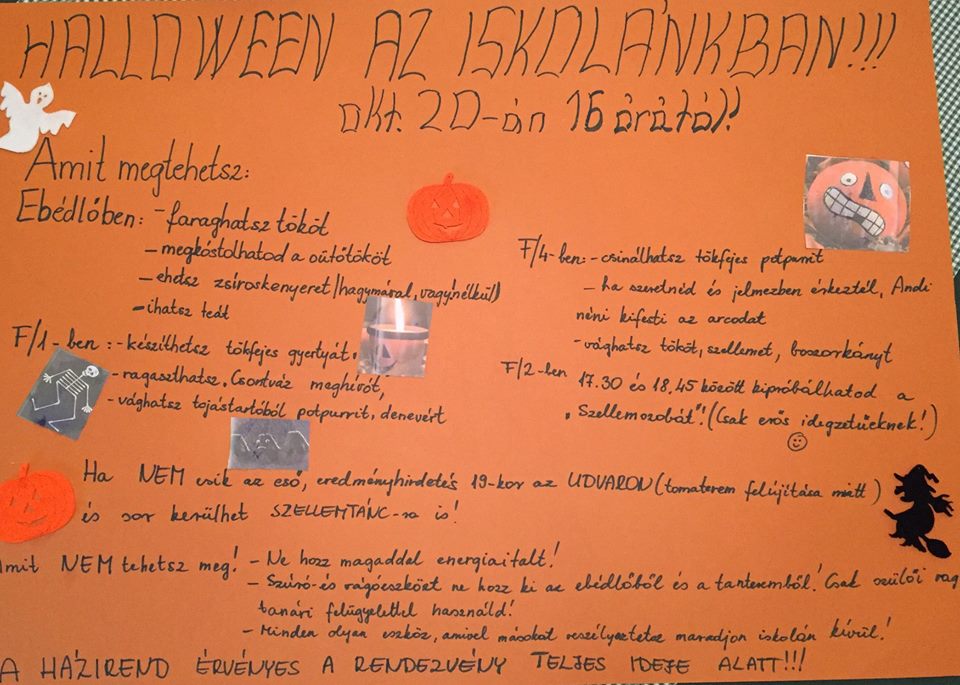 HALLOWEEN AZ ISKOLÁNKBAN!!!
okt. 20-án 16 órától!
Amit megtehetsz:
Ebédlőben: - faraghatsz tököt
- megkóstolhatod a sütőtököt
- ehetsz zsíroskenyeret (hagymával, vagy nélkül)
- ihatsz teát
F/1-ben: - készíthetsz tökfejes gyertyát
- ragaszthatsz, Csontváz meghívót,
- vághatsz tojástartóból potpurrit, denevért
F/4-ben: - csinálhatsz tökfejes potpurrit
- ha szeretnéd és jelmezben érkeztél, Andi
néni kifesti az arcodat
- vághatsz tököt, szellemet, boszorkányt
F/2-ben 17.30 és 18.45 között kipróbálhatod a
"Szellemszobát"! (Csak erős idegzetűeknek!)
Ha NEM esik az eső, eredményhirdetés 19-kor az UDVARON (tornaterem felújítása miatt)
és sor kerülhet SZELLEMTÁNC-ra is!
Amit NEM tehetsz meg! - Ne hozz magaddal energiaitalt!
- Szúró- és vágóeszközt ne hozz ki az ebédlőből és a tanteremből! Csak szülői vagy
tanári felügyelettel használd!
- Minden olyan eszköz, amivel másokat veszélyeztetsz maradjon iskolán kívül!
A HÁZIREND ÉRVÉNYES A RENDEZVÉNY TELJES IDEJE ALATT!!!